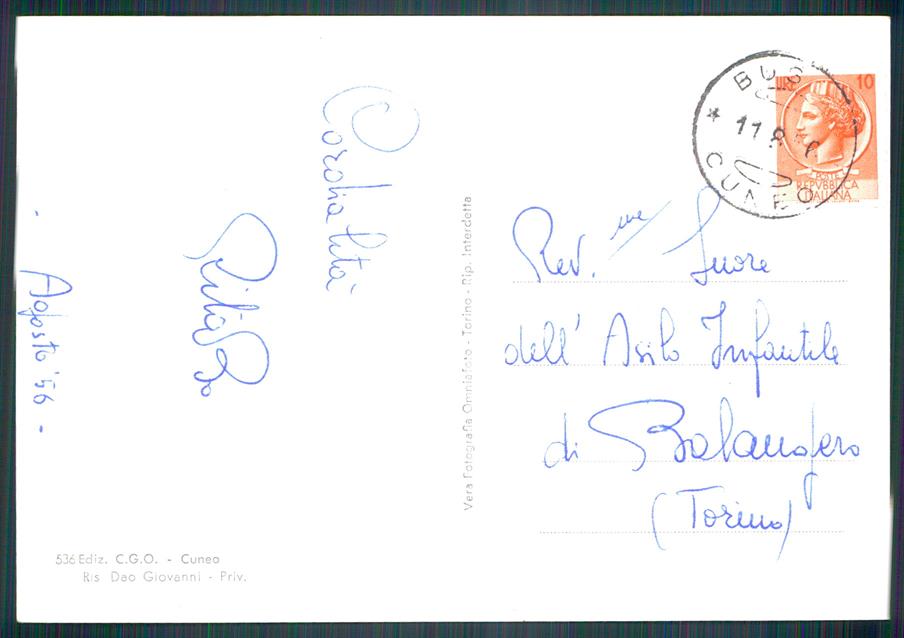 Cordialità
Agosto '56 -
536 Ediz. C.G.O. - Cuneo
Ris Dao Giovanni - Priv.
Vera Fotografia Omniafoto - Torino - Rip. Interdetta
CUNEO
11 8
LIRE 10
POSTE
REPVBBLICA
ITALIANA
Rev. me Suore
dell' Asilo Infantile
di Balangero
(Torino)